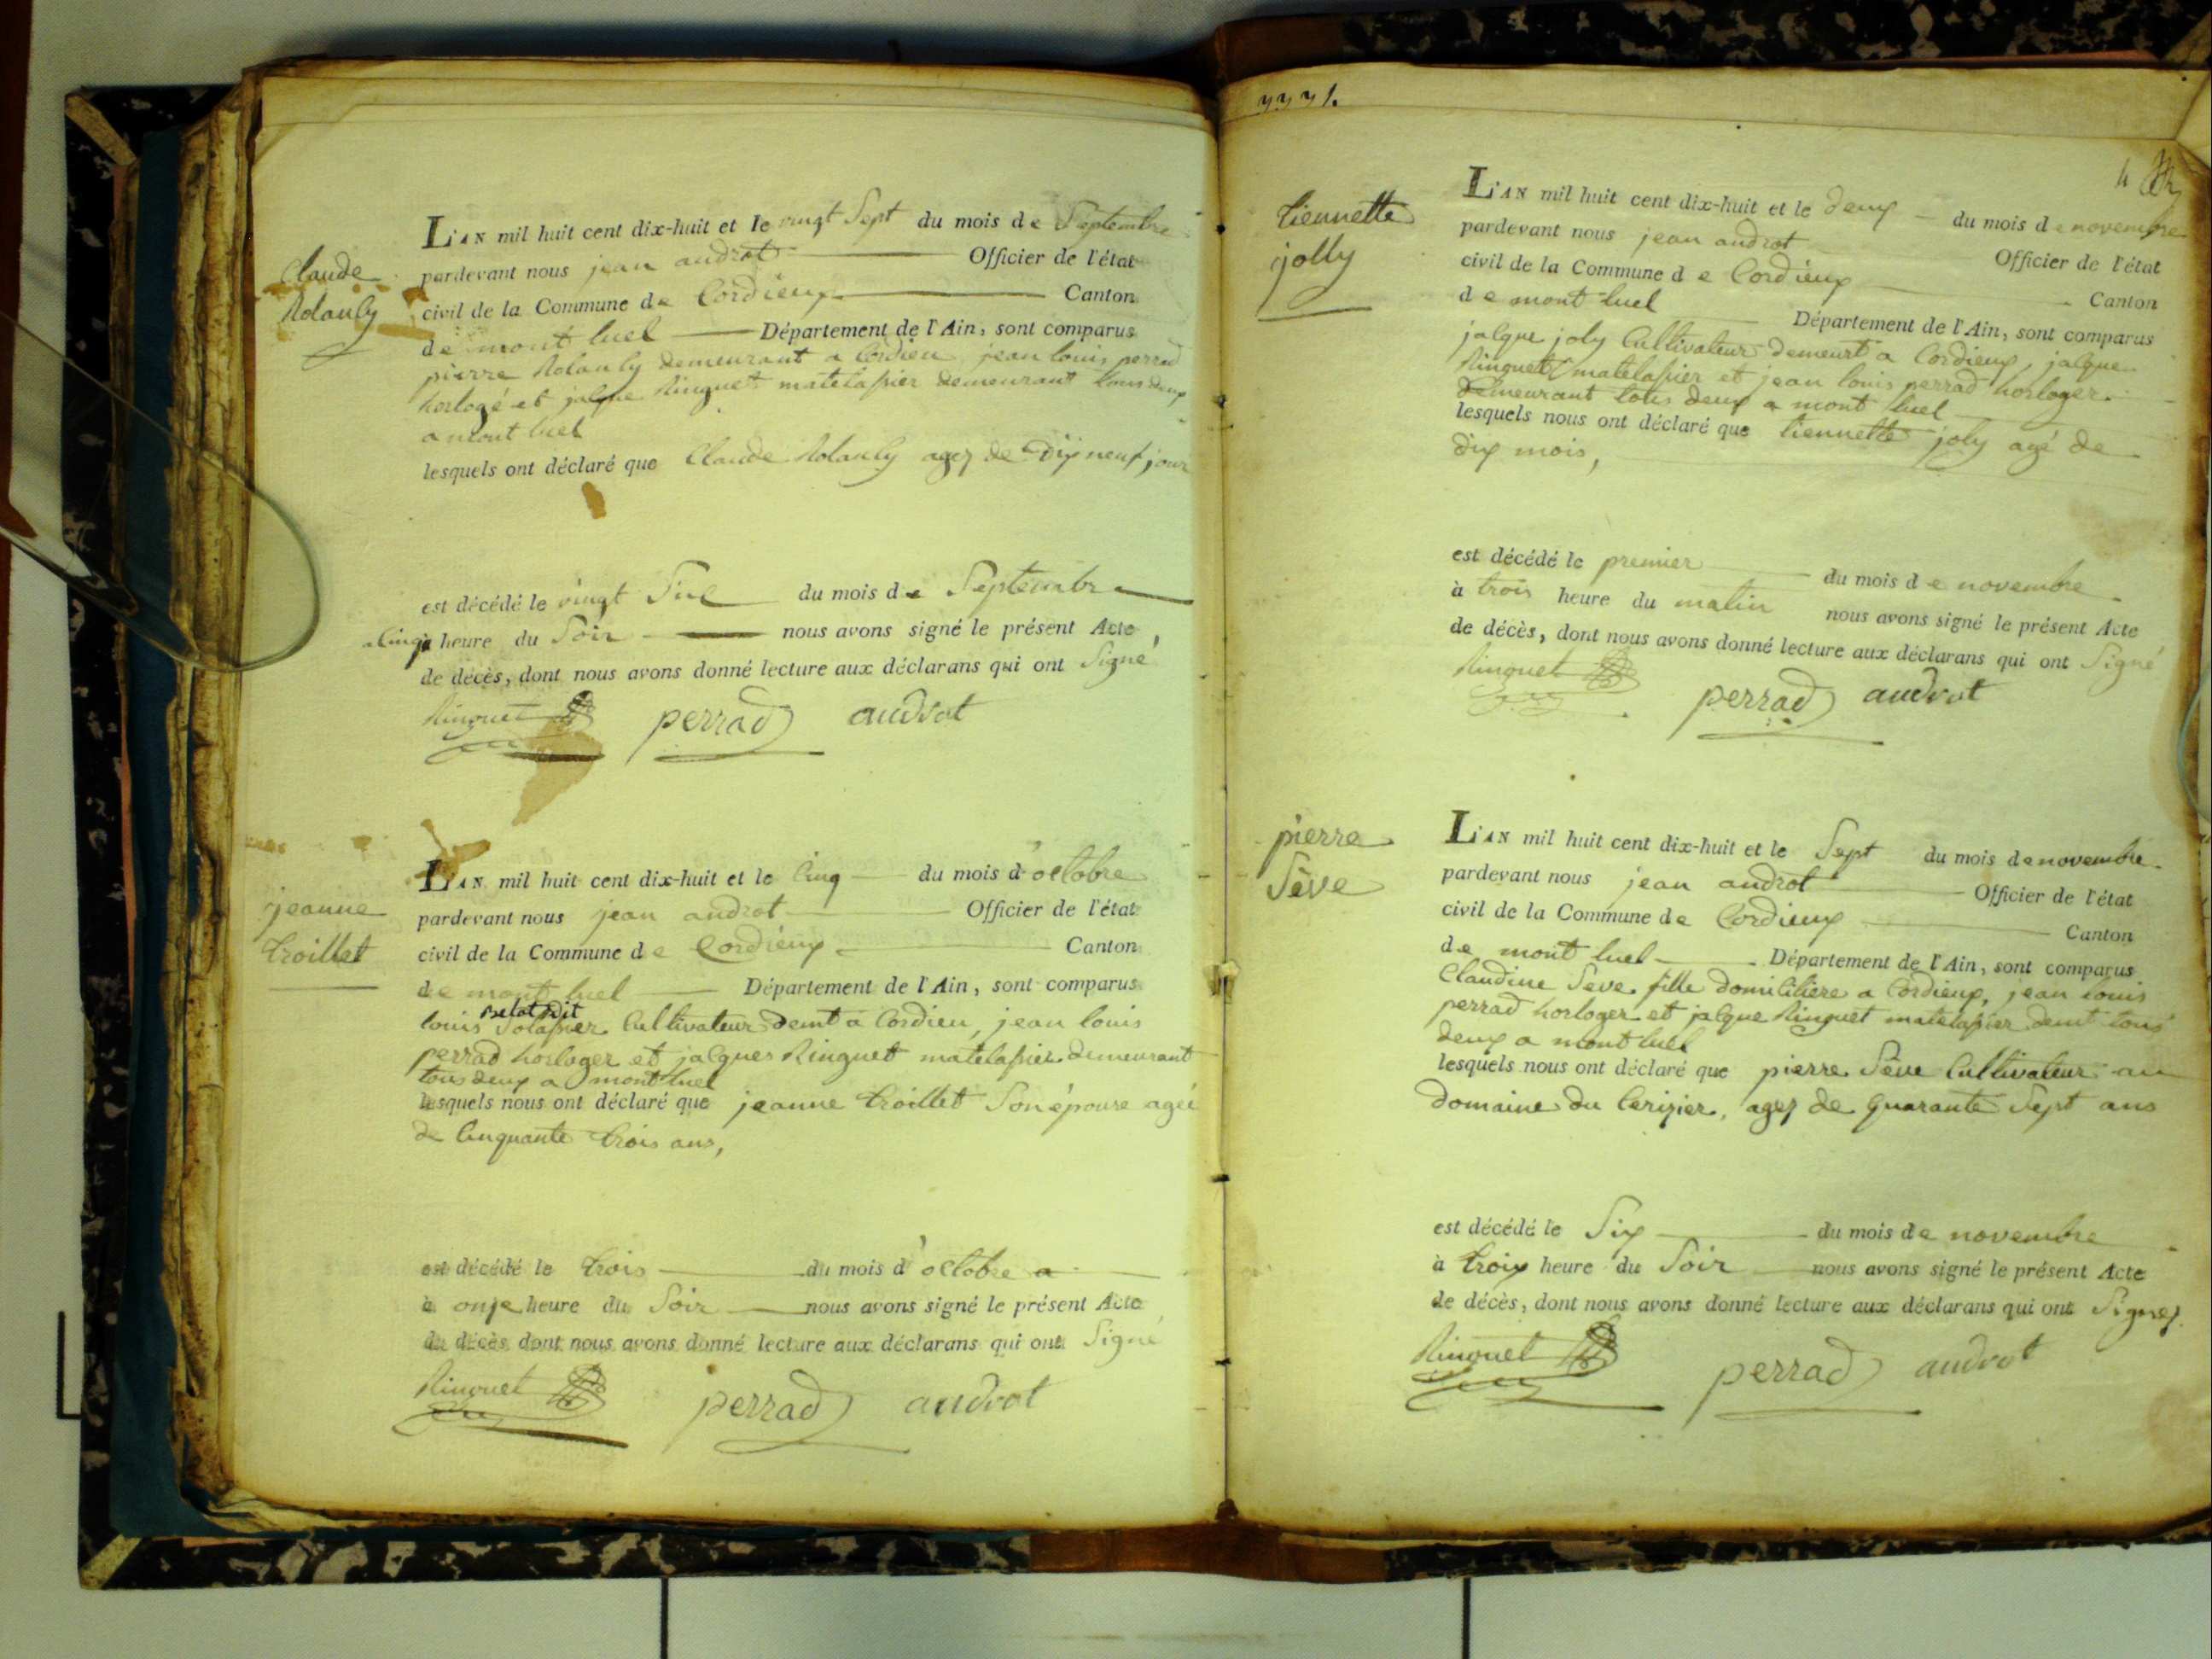 Claude
Rolauly
L'AN mil huit cent dix-huit et le vingt Sept du mois de Septembre
pardevant nous jean audrat Officier de l'état
civil de la Commune de Cordieux Canton
de mont luel Département de l'Ain, sont comparus
pierre Rolauly demeurant a Cordieu, jean louis perrad
horlogé et jalque Ringuet matelassier demeurant tous deux
a mont luel
lesquels ont déclaré que Claude Rolauly agez de Dix neuf jour
est décédé le vingt du mois de Septembre
a Cinq heure du Soir nous avons signé le présent Acte
de décès, dont nous avons donné lecture aux déclarans qui ont Signé
Ringuet perrad audrat
jeanne
troillet
L'AN mil huit cent dix-huit et le Cinq du mois d'octobre
pardevant nous jean audrat Officier de l'état
civil de la Commune de Cordieux Canton
de mont luel Département de l'Ain, sont comparus
Belat dit
louis Cultivateur demt a Cordieu, jean louis
perrad horloger et jacques Ringuet matelassier demeurant
tous deux a mont luel
lesquels nous ont déclaré que jeanne troillet Son épouse agée
de Cinquante trois ans,
est décédé le trois du mois d'octobre a
à onze heure du Soir nous avons signé le présent Acte
de décès dont nous avons donné lecture aux déclarans qui ont Signé
Ringuet perrad audrat
4
tiennette
jolly
L'AN mil huit cent dix-huit et le deux du mois de novembre
pardevant nous jean audrat Officier de l'état
civil de la Commune de Cordieux Canton
de mont luel Département de l'Ain, sont comparus
jalque joly Cultivateur demeurt a Cordieux, jalque
Ringuet matelassier et jean louis perrad horloger
demeurant tous deux a mont luel
lesquels nous ont déclaré que tiennette joly agé de
dix mois,
est décédé le premier du mois de novembre
à trois heure du matin nous avons signé le présent Acte
de décès, dont nous avons donné lecture aux déclarans qui ont Signé
Ringuet perrad audrat
pierre
Sève
L'AN mil huit cent dix-huit et le Sept du mois de novembre
pardevant nous jean audrat Officier de l'état
civil de la Commune de Cordieux Canton
de mont luel Département de l'Ain, sont comparus
Claudine Seve fille domiciliere a Cordieux, jean louis
perrad horloger et jalque Ringuet matelassier demt tous
deux a mont luel
lesquels nous ont déclaré que pierre Sève Cultivateur au
domaine du Cerizier, agez de quarante Sept ans
est décédé le Six du mois de novembre
à troix heure du Soir nous avons signé le présent Acte
de décès, dont nous avons donné lecture aux déclarans qui ont Signez
Ringuet perrad audrat